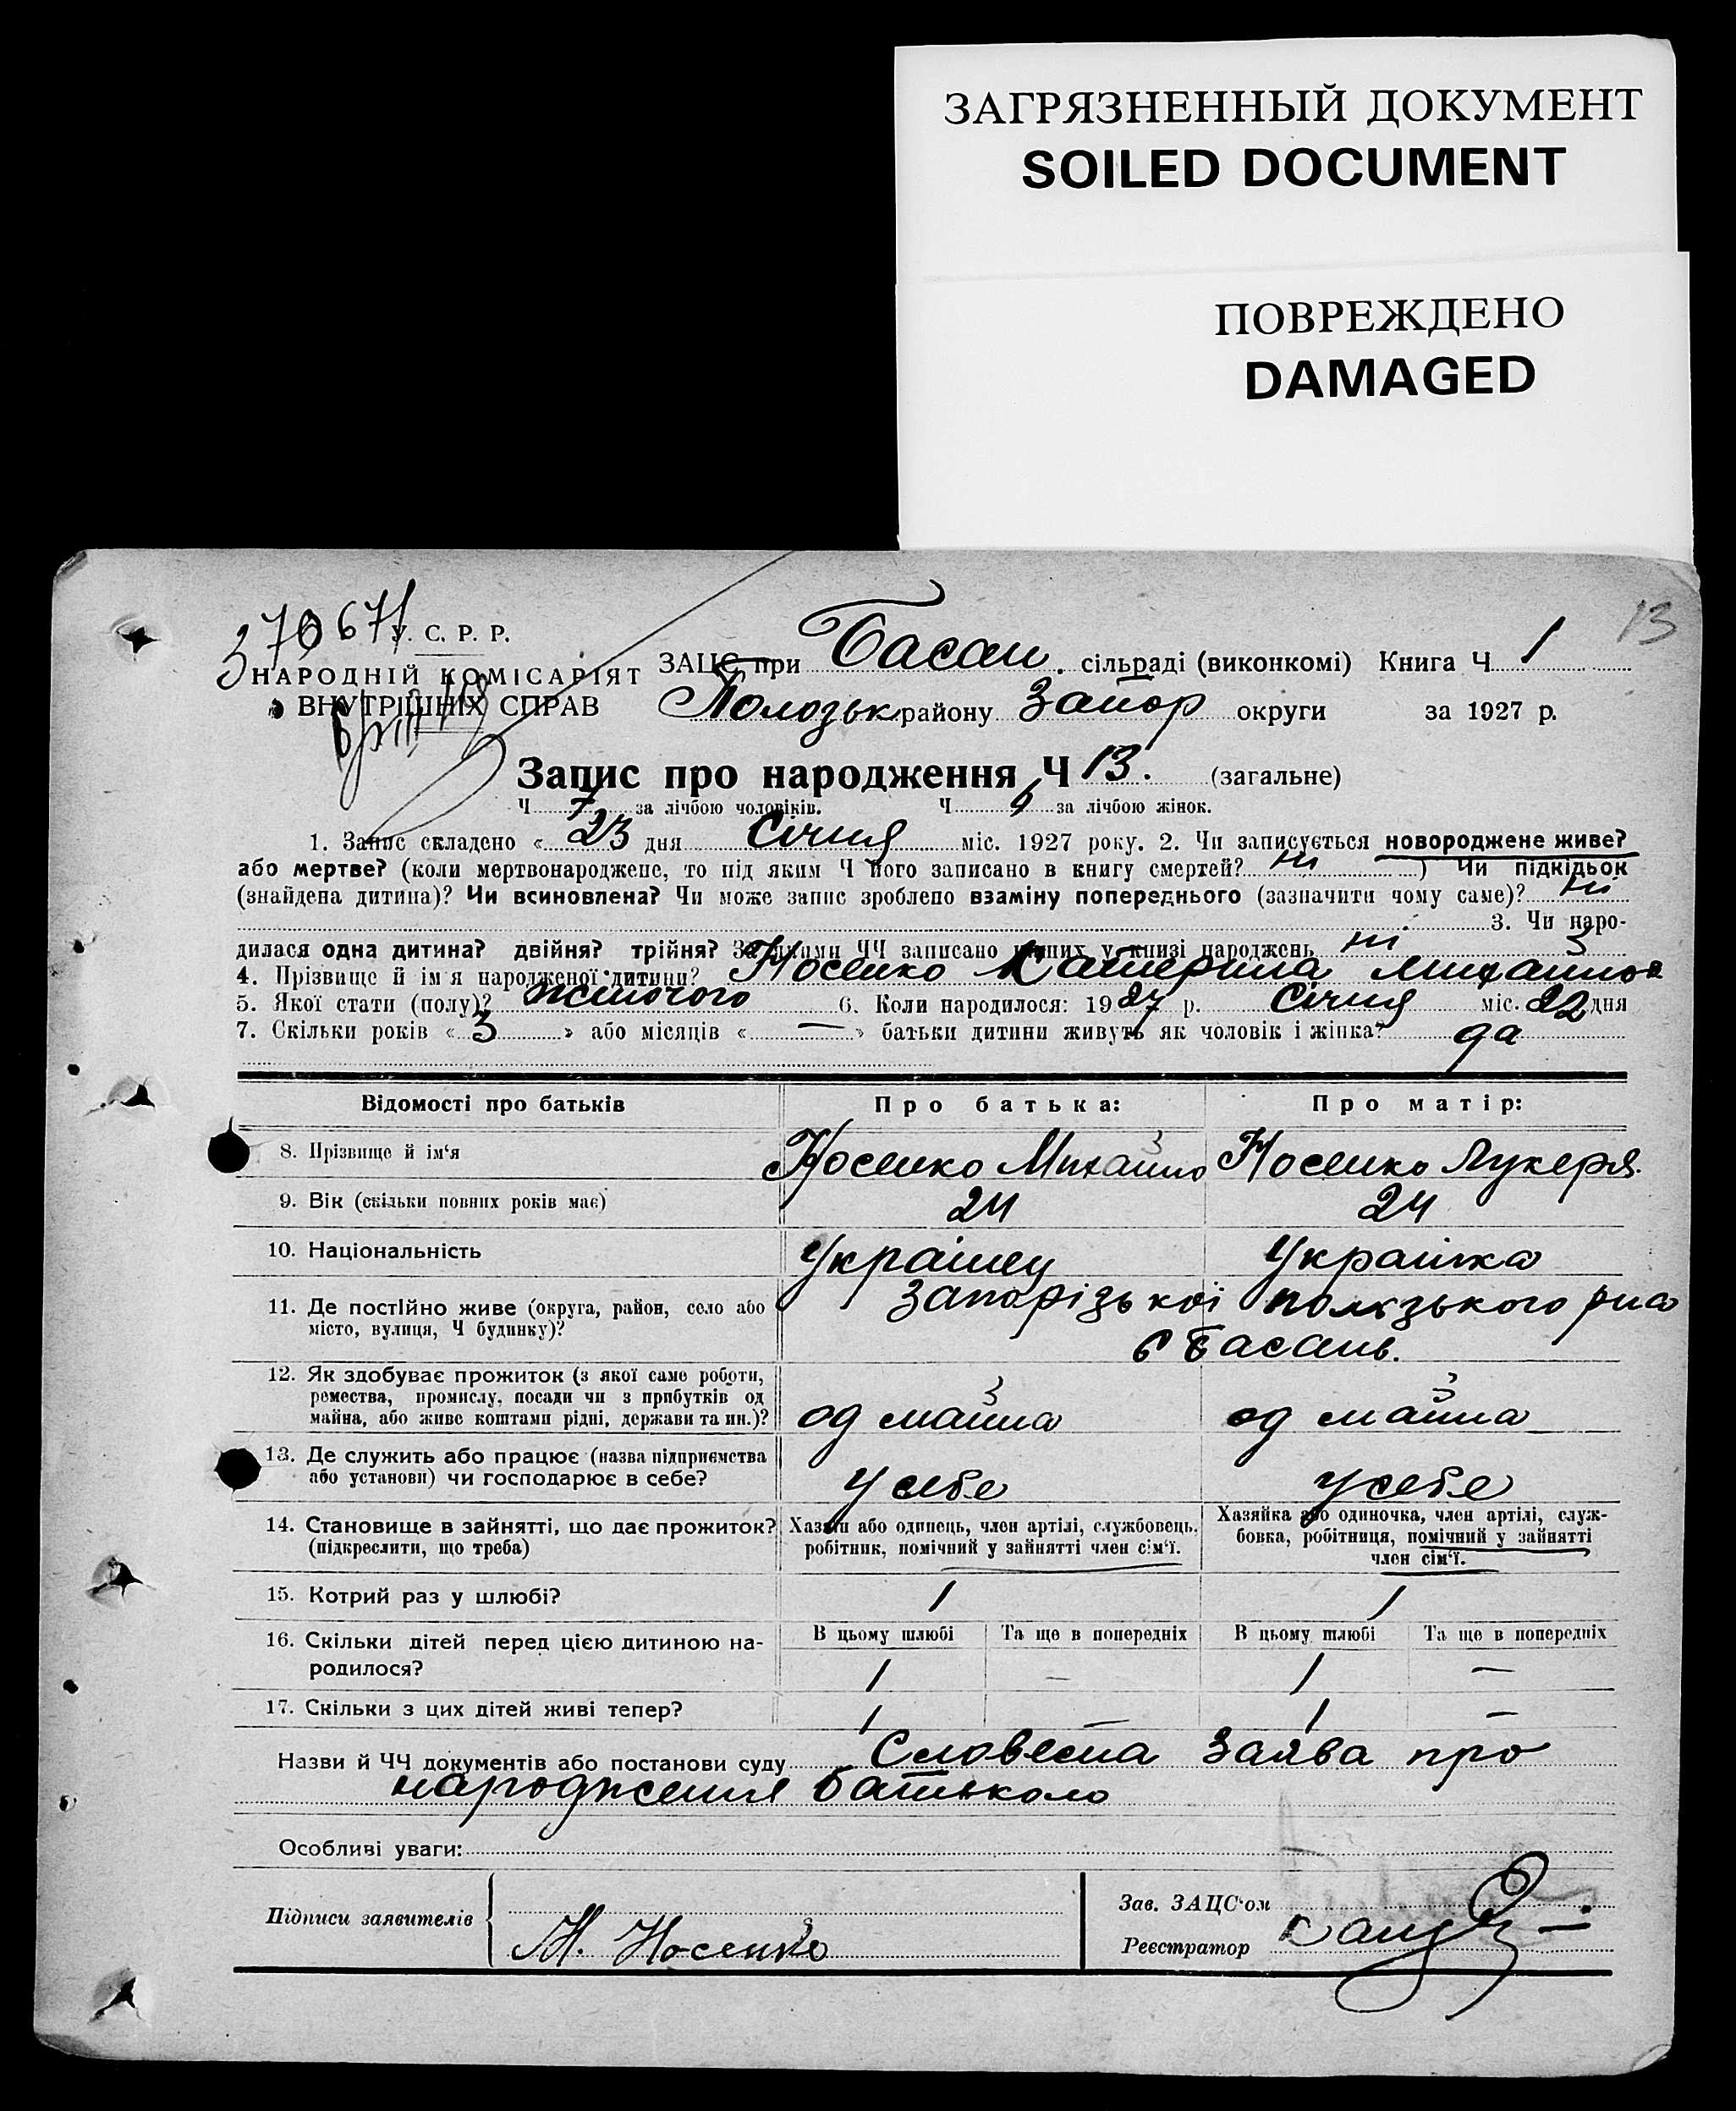 ЗАГРЯЗНЕННЫЙ ДОКУМЕНТ
SOILED DOCUMENT
ПОВРЕЖДЕНО
DAMAGED
13
У. С. Р. Р.
НАРОДНІЙ КОМІСАРІЯТ
ВНУТРІШНІХ СПРАВ
ЗАЦС при Басан. сільраді (виконкомі) Книга Ч 1
Полозьк району Запор округи за 1927 р.
Запис про народження Ч 13. (загальне)
Ч 7 за лічбою чоловіків. Ч 6 за лічбою жінок.
1. Запис складено « 23 дня Січня міс. 1927 року. 2. Чи записується новороджене живе?
або мертве? (коли мертвонароджене, то під яким Ч його записано в книгу смертей? ні ) Чи підкідьок
(знайдена дитина)? Чи всиновлена? Чи може запис зроблено взаміну попереднього (зазначити чому саме)? ні
3. Чи наро-
дилася одна дитина? двійня? трійня? За якими ЧЧ записано інших у книзі народжень ні
4. Прізвище й ім'я народженої дитини? Носенко Катерина Михаилов
5. Якої стати (полу)? жіночого 6. Коли народилося: 1927 р. Січня міс. 22 дня
7. Скільки років « 3 » або місяців « — » батьки дитини живуть як чоловік і жінка? да
Відомості про батьків Про батька: Про матір:
8. Прізвище й ім'я Носенко Михаило Носенко Лукеря
9. Вік (скільки повних років має) 24 24
10. Національність Українец Українка
11. Де постійно живе (округа, район, село або
місто, вулиця, Ч будинку)?
Запорізької
с Басань.
12. Як здобуває прожиток (з якої саме роботи,
ремества, промислу, посади чи з прибутків од
майна, або живе коштами рідні, держави та ин.)?
од маина од маина
13. Де служить або працює (назва підприємства
або установи) чи господарює в себе?
у себе у себе
14. Становище в зайнятті, що дає прожиток?
(підкреслити, що треба)
Хазяїн або одинець, член артілі, службовець,
робітник, помічний у зайнятті член сім'ї.
Хазяйка або одиночка, член артілі, служ-
бовка, робітниця, помічний у зайнятті
член сім'ї.
15. Котрий раз у шлюбі? 1 1
16. Скільки дітей перед цією дитиною на-
родилося?
В цьому шлюбі Та ще в попередніх В цьому шлюбі Та ще в попередніх
1 — 1 —
17. Скільки з цих дітей живі тепер? 1 — 1 —
Назви й ЧЧ документів або постанови суду Словесна заява про
народження батьком
Особливі уваги:
Підписи заявителів М. Носенко
Зав. ЗАЦС'ом
Реєстратор